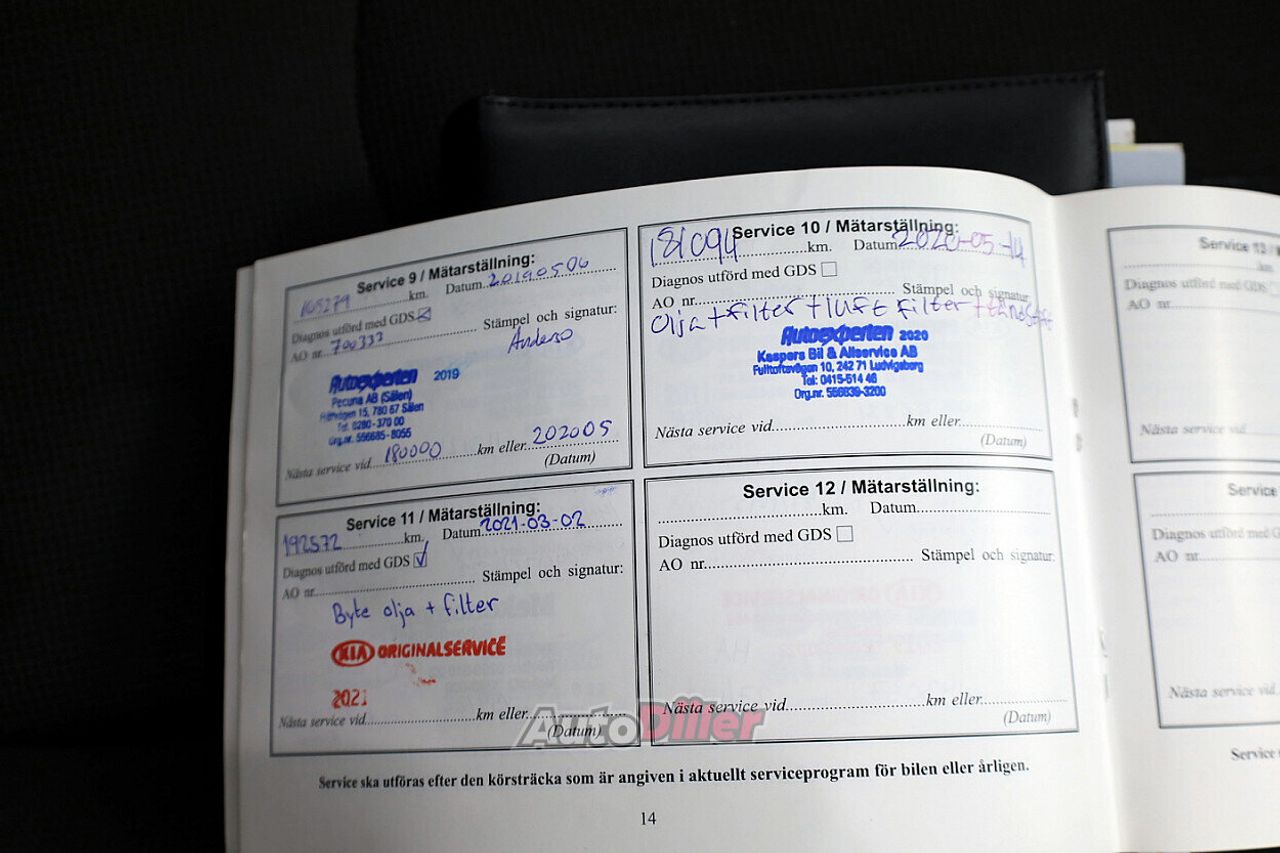 Service 9 / Mätarställning:
165279 km. Datum 20190506
Diagnos utförd med GDS
AO nr. 700333 Stämpel och signatur:
Anderso
Autoexperten 2019
Pecuna AB (Sälen)
15, 780 67 Sälen
Tel. 0280-370 00
Org.nr. 556685-8055
Nästa service vid 180000 km eller 202005
(Datum)
Service 10 / Mätarställning:
181094 km. Datum 2020-05-14
Diagnos utförd med GDS
AO nr. Stämpel och signatur:
Olja+filter+luft filter+tändstift
Autoexperten 2020
Kaspers Bil & Allservice AB
Fulltoftavägen 10, 242 71 Ludvigsborg
Tel: 0415-514 46
Org.nr. 556839-3200
Nästa service vid km eller
(Datum)
Service 11 / Mätarställning:
192572 km. Datum 2021-03-02
Diagnos utförd med GDS ✓
AO nr. Stämpel och signatur:
Byte olja + filter
KIA ORIGINALSERVICE
2021
Nästa service vid km eller
(Datum)
Service 12 / Mätarställning:
km. Datum
Diagnos utförd med GDS
AO nr. Stämpel och signatur:
Nästa service vid km eller
(Datum)
AutoDiler
Service ska utföras efter den körsträcka som är angiven i aktuellt serviceprogram för bilen eller årligen.
14
Service 13 /
km.
Diagnos utförd med GDS
AO nr.
Nästa service vid
Service
Diagnos utförd med G
AO nr.
Nästa service vid
Service